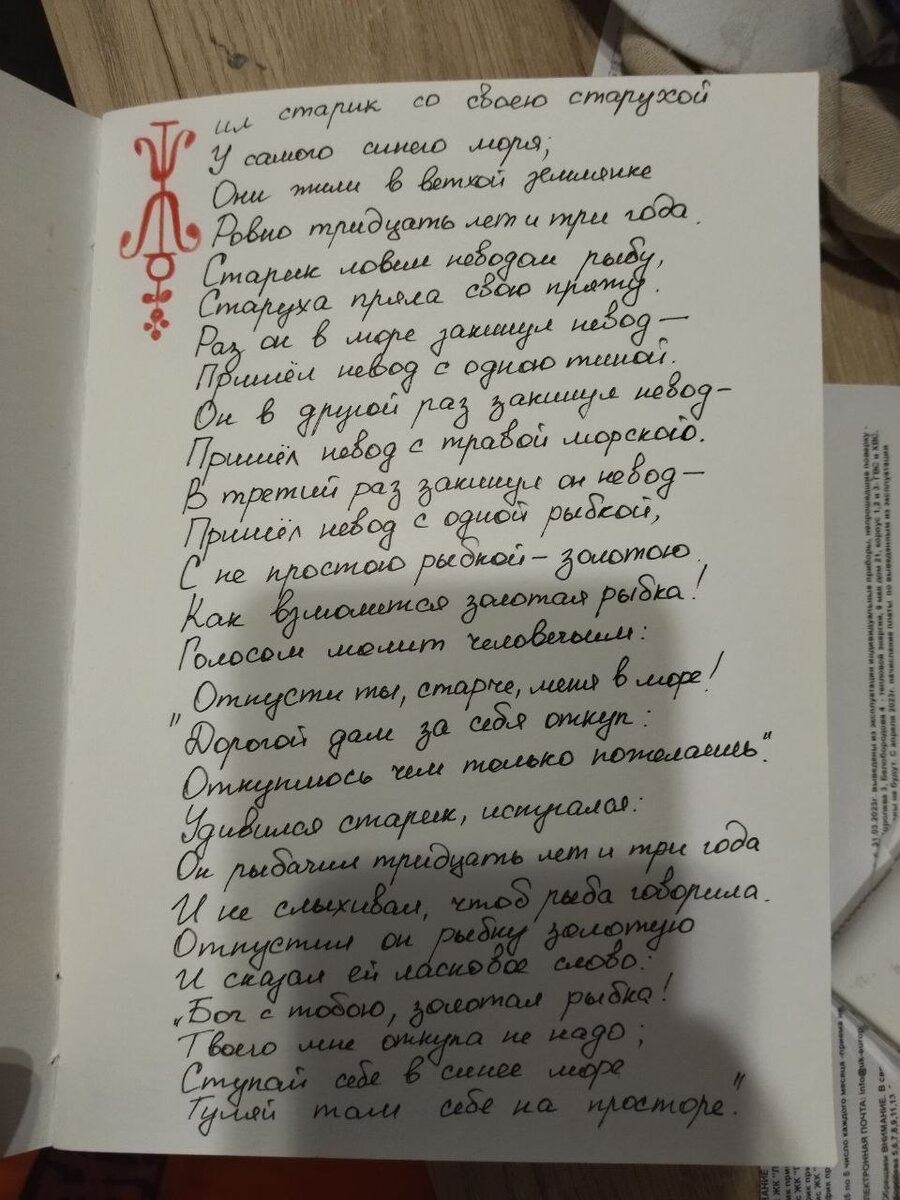 Жил старик со своею старухой
У самого синего моря;
Они жили в ветхой землянке
Ровно тридцать лет и три года.
Старик ловил неводом рыбу,
Старуха пряла свою пряжу.
Раз он в море закинул невод—
Пришёл невод с одною тиной.
Он в другой раз закинул невод—
Пришёл невод с травой морскою.
В третий раз закинул он невод—
Пришёл невод с одной рыбкой,
С не простою рыбкой—золотою.
Как взмолится золотая рыбка!
Голосом молит человечьим:
„Отпусти ты, старче, меня в море!
Дорогой дам за себя откуп:
Откуплюсь чем только пожелаешь."
Удивился старик, испугался:
Он рыбачил тридцать лет и три года
И не слыхивал, чтоб рыба говорила.
Отпустил он рыбку золотую
И сказал ей ласковое слово:
„Бог с тобою, золотая рыбка!
Твоего мне откупа не надо;
Ступай себе в синее море
Гуляй там себе на просторе."
21.03.2023г. выведены из эксплуатации индивидуальные приборы, непрошедшие поверку -